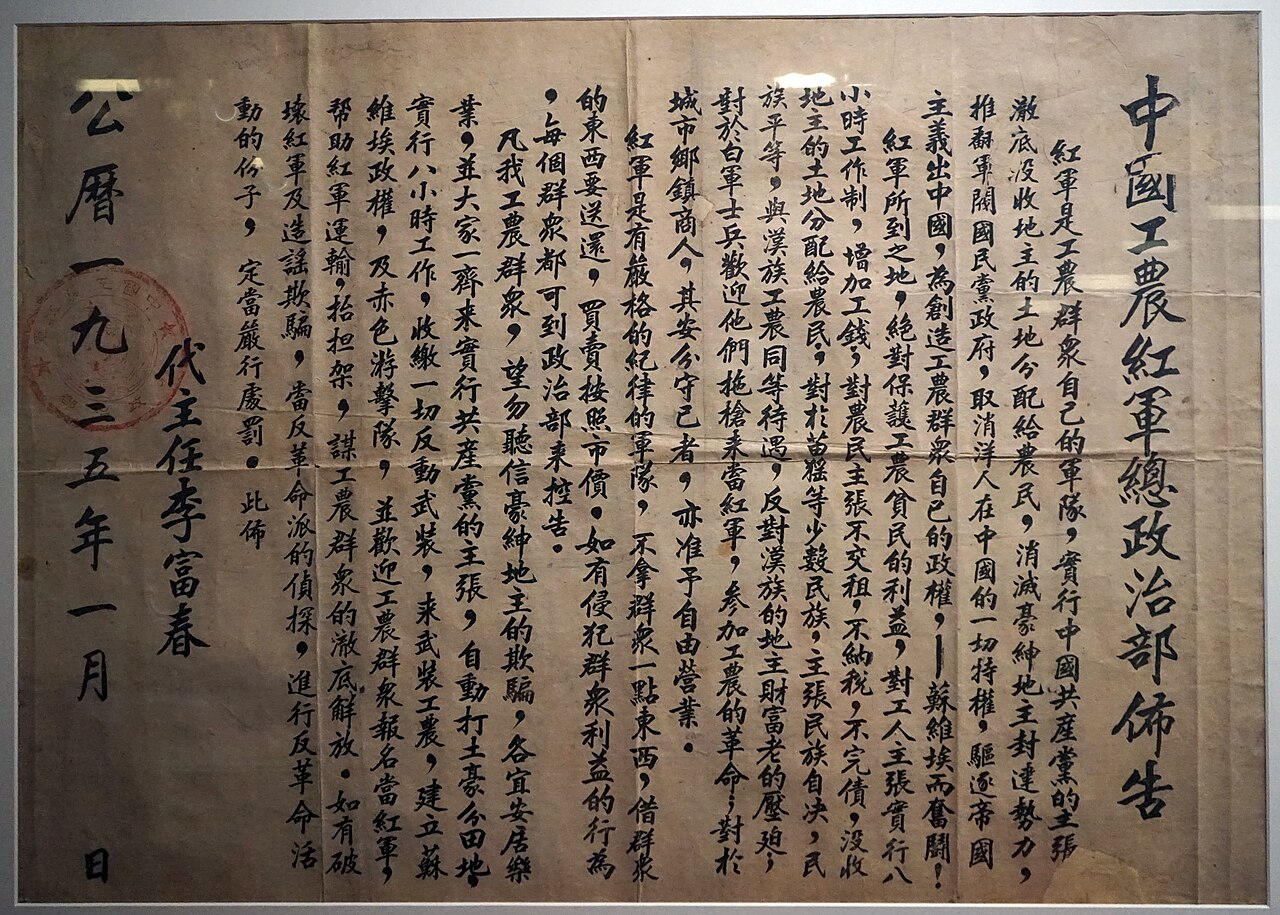 中國工農紅軍總政治部佈告
紅軍是工農群衆自己的軍隊，實行中國共産黨的主張
澈底没收地主的土地分配給農民，消滅豪紳地主封建勢力，
推翻軍閥國民黨政府，取消洋人在中國的一切特權，驅逐帝國
主義出中國，為創造工農群衆自己的政權，——蘇維埃而奮鬪！
紅軍所到之地，絶對保護工農貧民的利益，對工人主張實行八
小時工作制，增加工錢，對農民主張不交租，不納稅，不完債，没收
地主的土地分配給農民，對於苗猺等少數民族，主張民族自决，民
族平等，與漢族工農同等待遇，反對漢族的地主財富老的壓迫，
對於白軍士兵歡迎他們拖槍來當紅軍，參加工農的革命，對於
城市鄉鎮商人，其安分守己者，亦准予自由營業。
紅軍是有嚴格的紀律的軍隊，不拿群衆一點東西，借群衆
的東西要送還，買賣按照市價。如有侵犯群衆利益的行為
，每個群衆都可到政治部來控告。
凡我工農群衆，望勿聽信豪紳地主的欺騙，各宜安居樂
業，並大家一齊来實行共産黨的主張，自動打土豪分田地，
實行八小時工作，收繳一切反動武裝，来武裝工農，建立蘇
維埃政權，及赤色游擊隊，並歡迎工農群衆報名當紅軍，
帮助紅軍運輸，抬担架，謀工農群衆的澈底解放。如有破
壞紅軍及造謡欺騙，當反革命派的偵探，進行反革命活
動的份子，定當嚴行處罰。此佈
代主任李富春
公曆一九三五年一月 日